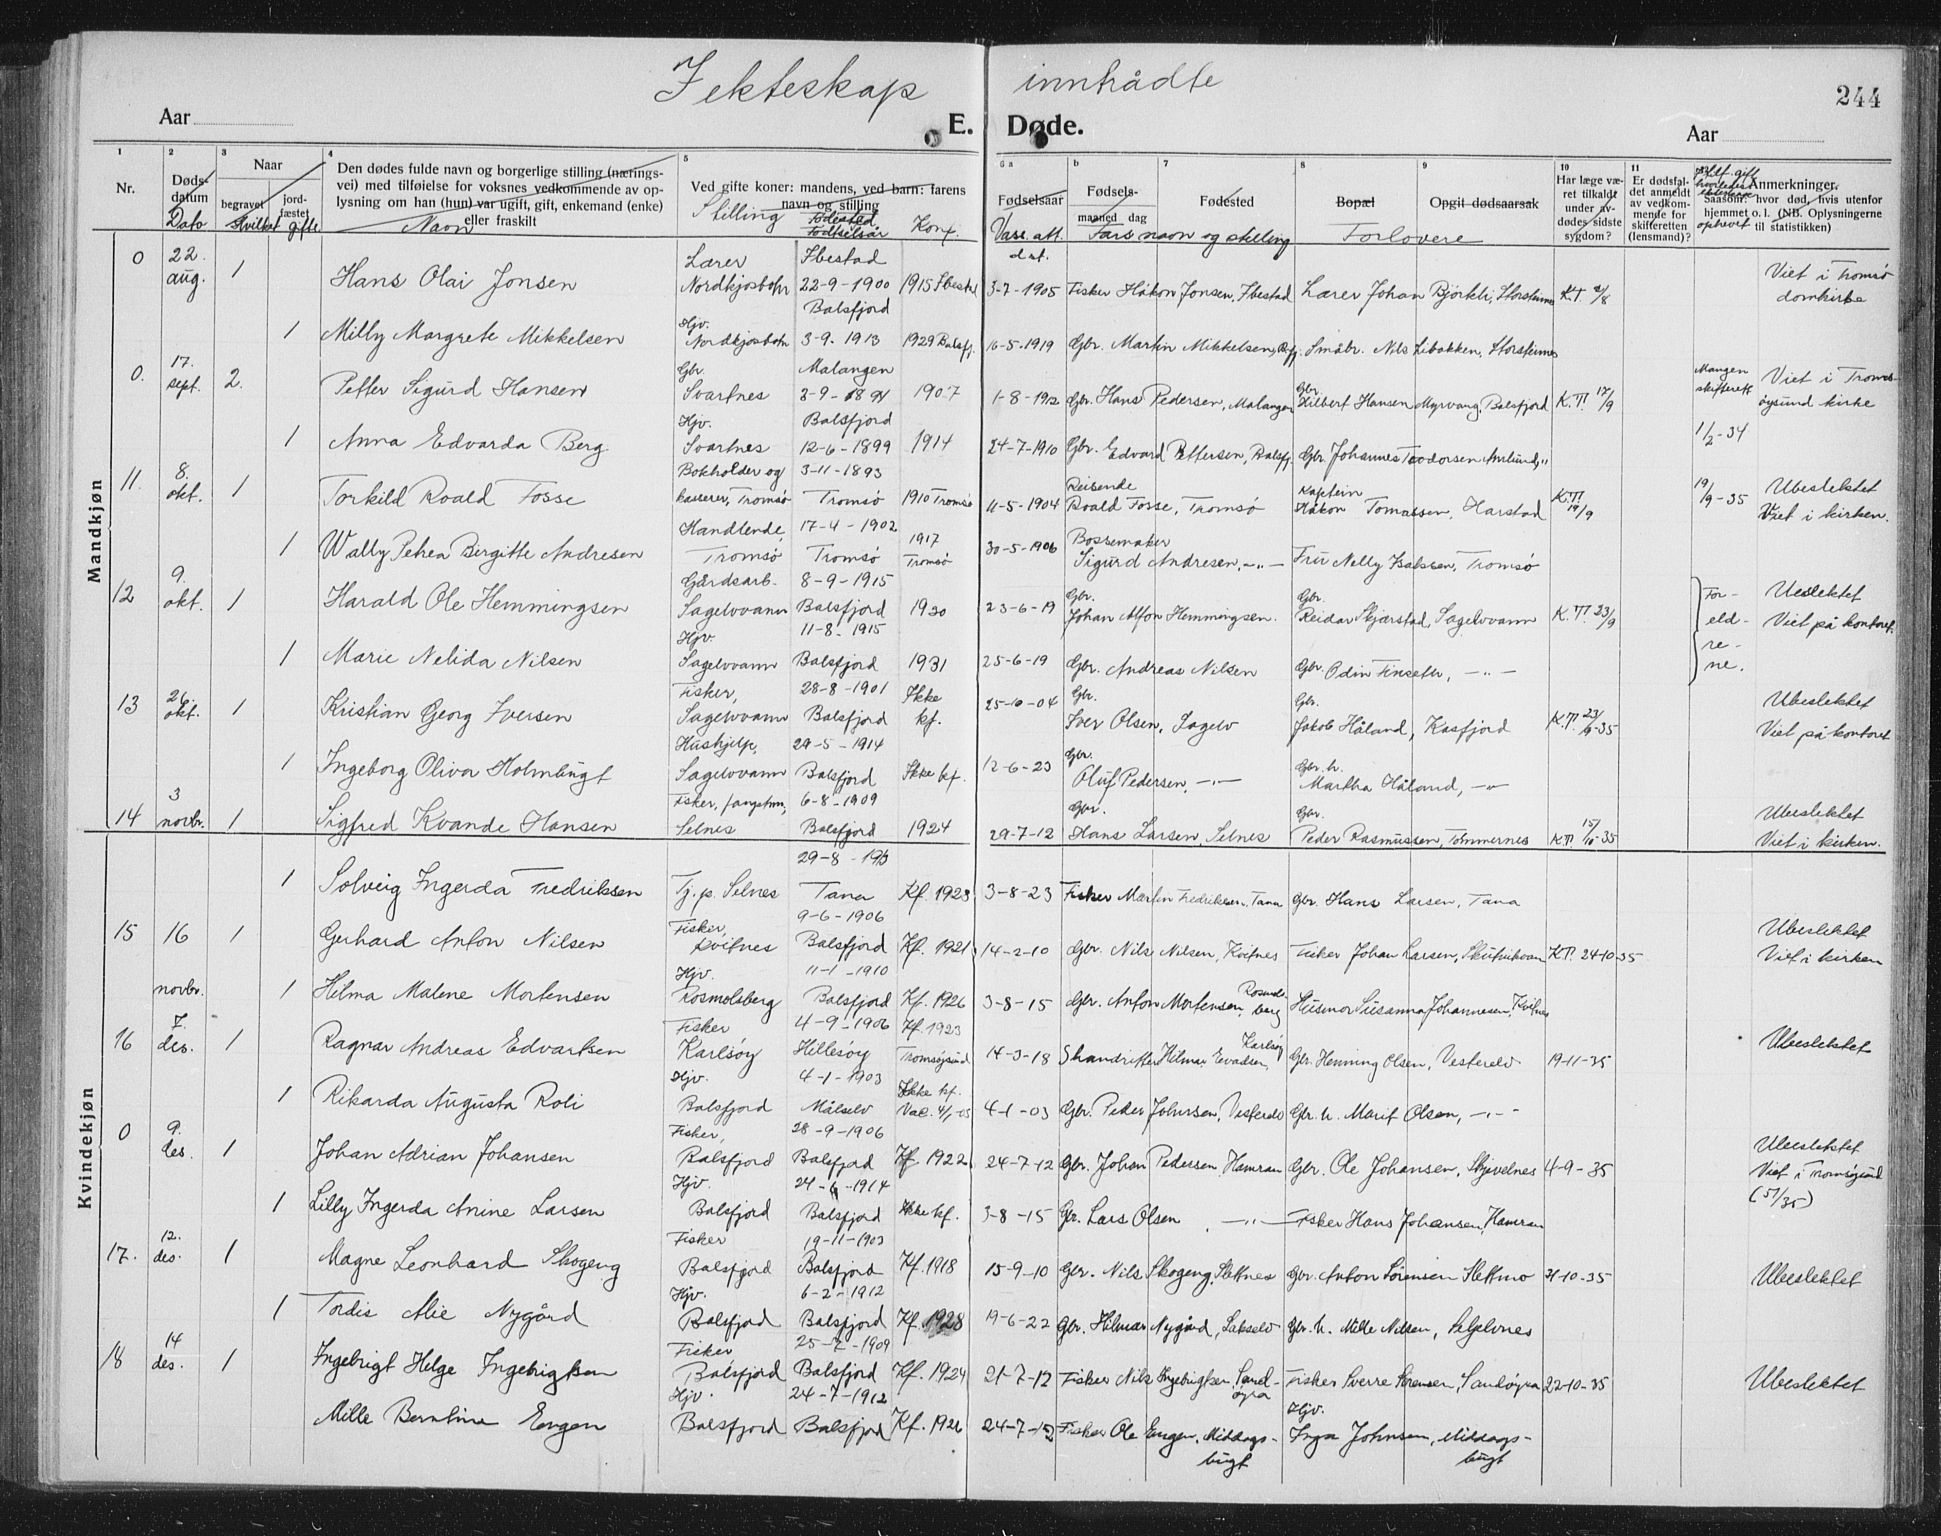 Jekteskap inntrådte
244
Aar
E. Døde.
Aar
1 2 3 4 5 6 a b 7 8 9 10 11
Nr.
Døds-
datum
Dato
Naar
begravet
Hvilket
jord-
fæstet
gifte
Den dødes fulde navn og borgerlige stilling (nærings-
vei) med tilføielse for voksnes vedkommende av op-
lysning om han (hun) var ugift, gift, enkemand (enke)
eller fraskilt
Navn
Ved gifte koner: mandens, ved barn: farens
navn og stilling
Stilling
Fødested
Fødselsår
Konf.
Fødselsaar
Vacc. att.
dat.
Fødsels-
maaned dag
Fødested
Fars navn og stilling
Bopæl
Opgit dødsaarsak
Forlovere
Har læge væ-
ret tilkaldt
under av-
dødes sidste
sygdom?
Er dødsfal-
det anmeldt
av vedkom-
mende for
skifteretten
(lensmand)?
Anmerkninger.
Saasom: hvor død, hvis utenfor
hjemmet o. l. (NB. Oplysningerne
til statistikken)
Mandkjøn
0 22. aug. 1 Hans Olai Jonsen Lærer Nordkjosbotn Ibestad 22-9-1900 1915 Ibestad 3-7-1905 Fisker Håkon Jonsen, Ibestad Lærer Johan Bjørkli, Storsteinnes K.T. 2/8 Viet i Tromsø domkirke
1 Milly Margrete Mikkelsen Hjv. Nordkjosbotn Balsfjord 3-9-1913 1929 Balsfj. 16-5-1919 Gbr. Martin Mikkelsen, Bsfj. Småbr. Nils Libakken, Storsteinnes
0. 17. sept. 2. Petter Sigurd Hansen Gbr. Svartnes Malangen 3-9-1891 1907 1-8-1912 Gbr. Hans Pedersen, Malangen Gbr. Hilbert Hansen Myrvang, Balsfjord K.T. 17/9 Viet i Tromsøysund kirke
1 Anna Edvarda Berg Hjv. Svartnes Balsfjord 12-6-1899 1914 24-7-1910 Gbr. Edvard Pettersen, Balsfj. Gbr. Johannes Teodorsen 1/2-34
11. 8. okt. 1 Torkild Roald Fosse Bokholder og kasserer, Tromsø 3-11-1893 Tromsø 1910 Tromsø 11-5-1904 Reisende Roald Fosse, Tromsø Kaptein Håkon Tomassen, Harstad K.T. 19/9 19/9-35 Ubeslektet Viet i kirken.
1 Wally Petrea Birgitte Andresen Handlende, Tromsø 17-4-1902 Tromsø 1917 Tromsø 30-5-1906 Bøssemaker Sigurd Andresen, -"- Fru Nelly Isaksen, Tromsø
12 9. okt. 1 Harald Ole Hemmingsen Gårdsarb. Sagelvvann 8-9-1915 Balsfjord 1930 23-6-19 Gbr. Johan Alfon Hemmingsen. Gbr. Reidar Skjærstad, Sagelvvann K.T. 23/9 For-eld-re-ne. Ueslektet Viet på kontoret.
1 Marie Nelida Nilsen Hjv. Sagelvvann 11-8-1915 Balsfjord 1931 25-6-19 Gbr. Andreas Nilsen Gbr. Odin Finseth, -"-
13 26. okt. 1 Kristian Georg Iversen Fisker, Sagelvvann 28-8-1901 Balsfjord Ikke kf. 25-10-04 Gbr. Iver Olsen, Sagelv Gbr. Jakob Håland, Kasfjord K.T. 23/9-35 Ubeslektet Viet på kontoret
1 Ingeborg Oliva Holmbugt Hushjelp, Sagelvvann 29-5-1914 Balsfjord Ikke kf. 12-6-23 Gbr. Oluf Pedersen, -"- Gbr. h. Martha Håland, -"-
14 3 novbr. 1 Sigfred Kvande Hansen Fisker, fangstm., Selnes 6-8-1909 Balsfjord 1924 29-7-12 Gbr. Hans Larsen, Selnes Gbr. Peder Rasmussen, Tømmernes K.T. 15/10-35 Ubeslektet Viet i kirken.
Kvindekjøn
1 Solveig Ingerda Fredriksen Tj. p. Selnes 29-8- Tana Kf. 1923 3-8-23 Fisker Martin Fredriksen, Tana Gbr. Hans Larsen, Tana
15 16 novbr. 1 Gerhard Anton Nilsen Fisker, Kvitnes 9-6-1906 Balsfjord Kf. 1921 14-2-10 Gbr. Nils Nilsen, Kvitnes Fisker Johan Larsen, KT. 24-10-35 Ubeslektet Viet i kirken
1 Hilma Malene Mortensen Hjv. Rosmolsberg 11-1-1910 Balsfjord Kf. 1926 3-8-15 Gbr. Anton Mortensen, Husmor Susanna Johannesen, Kvitnes
16 7. des. 1 Ragnar Andreas Edvartsen Fisker Karlsøy 4-9-1906 Hillesøy Kf. 1923 Tromsøysund 14-3-18 Hilmar Karlsøy Gbr. Henning Olsen, 19-11-35 Ubeslektet
1 Rikarda Augusta Roli Hjv. Balsfjord 4-1-1903 Målselv Ikke kf. Vac. 4/1-03 4-1-03 Gbr. Peder Johnsen, Gbr. h. Marit Olsen, -"-
0 9. des. 1 Johan Adrian Johansen Fisker, Balsfjord 28-9-1906 Balsfjord Kf. 1922 24-7-12 Gbr. Johan Pedersen, Hamran Gbr. Ole Johansen, Skjevelnes 4-9-35 Ubeslektet Viet i Tromsøysund (51/35)
1 Lilly Ingerda Anine Larsen Hjv. Balsfjord 24-6-1914 Balsfjord Ikke kf. 3-8-15 Gbr. Lars Olsen, -"- Fisker Hans Johansen, Hamran
17. 12. des. 1 Magne Leonhard Skogeng Fisker Balsfjord 19-11-1903 Balsfjord Kf. 1918 15-9-10 Gbr. Nils Skogeng, Slettnes Gbr. Anton Sørensen Slettmo 31-10-35 Ubeslektet
1 Tordis Alie Nygård Hjv. Balsfjord 6-2-1912 Balsfjord Kf. 1928 19-6-22 Gbr. Hilmar Nygård, Lakselv Gbr. h. Mille Nilsen, Seljelvnes
18 14 des. 1 Ingebrigt Helge Ingebrigtsen Fisker Balsfjord 25-7-1909 Balsfjord Kf. 1924 21-7-12 Fisker Nils Ingebrigtsen, Sandøyra Fisker Sverre Sørensen, Sandøyra 22-10-35 Ubeslektet
Mille Berntine Engen Hjv. Balsfjord 24-7-1912 Balsfjord Kf. 1926 24-7-12 Fisker Ole Engen, Middagsbugt Hjv. Inga Johnsen, Middagsbugt